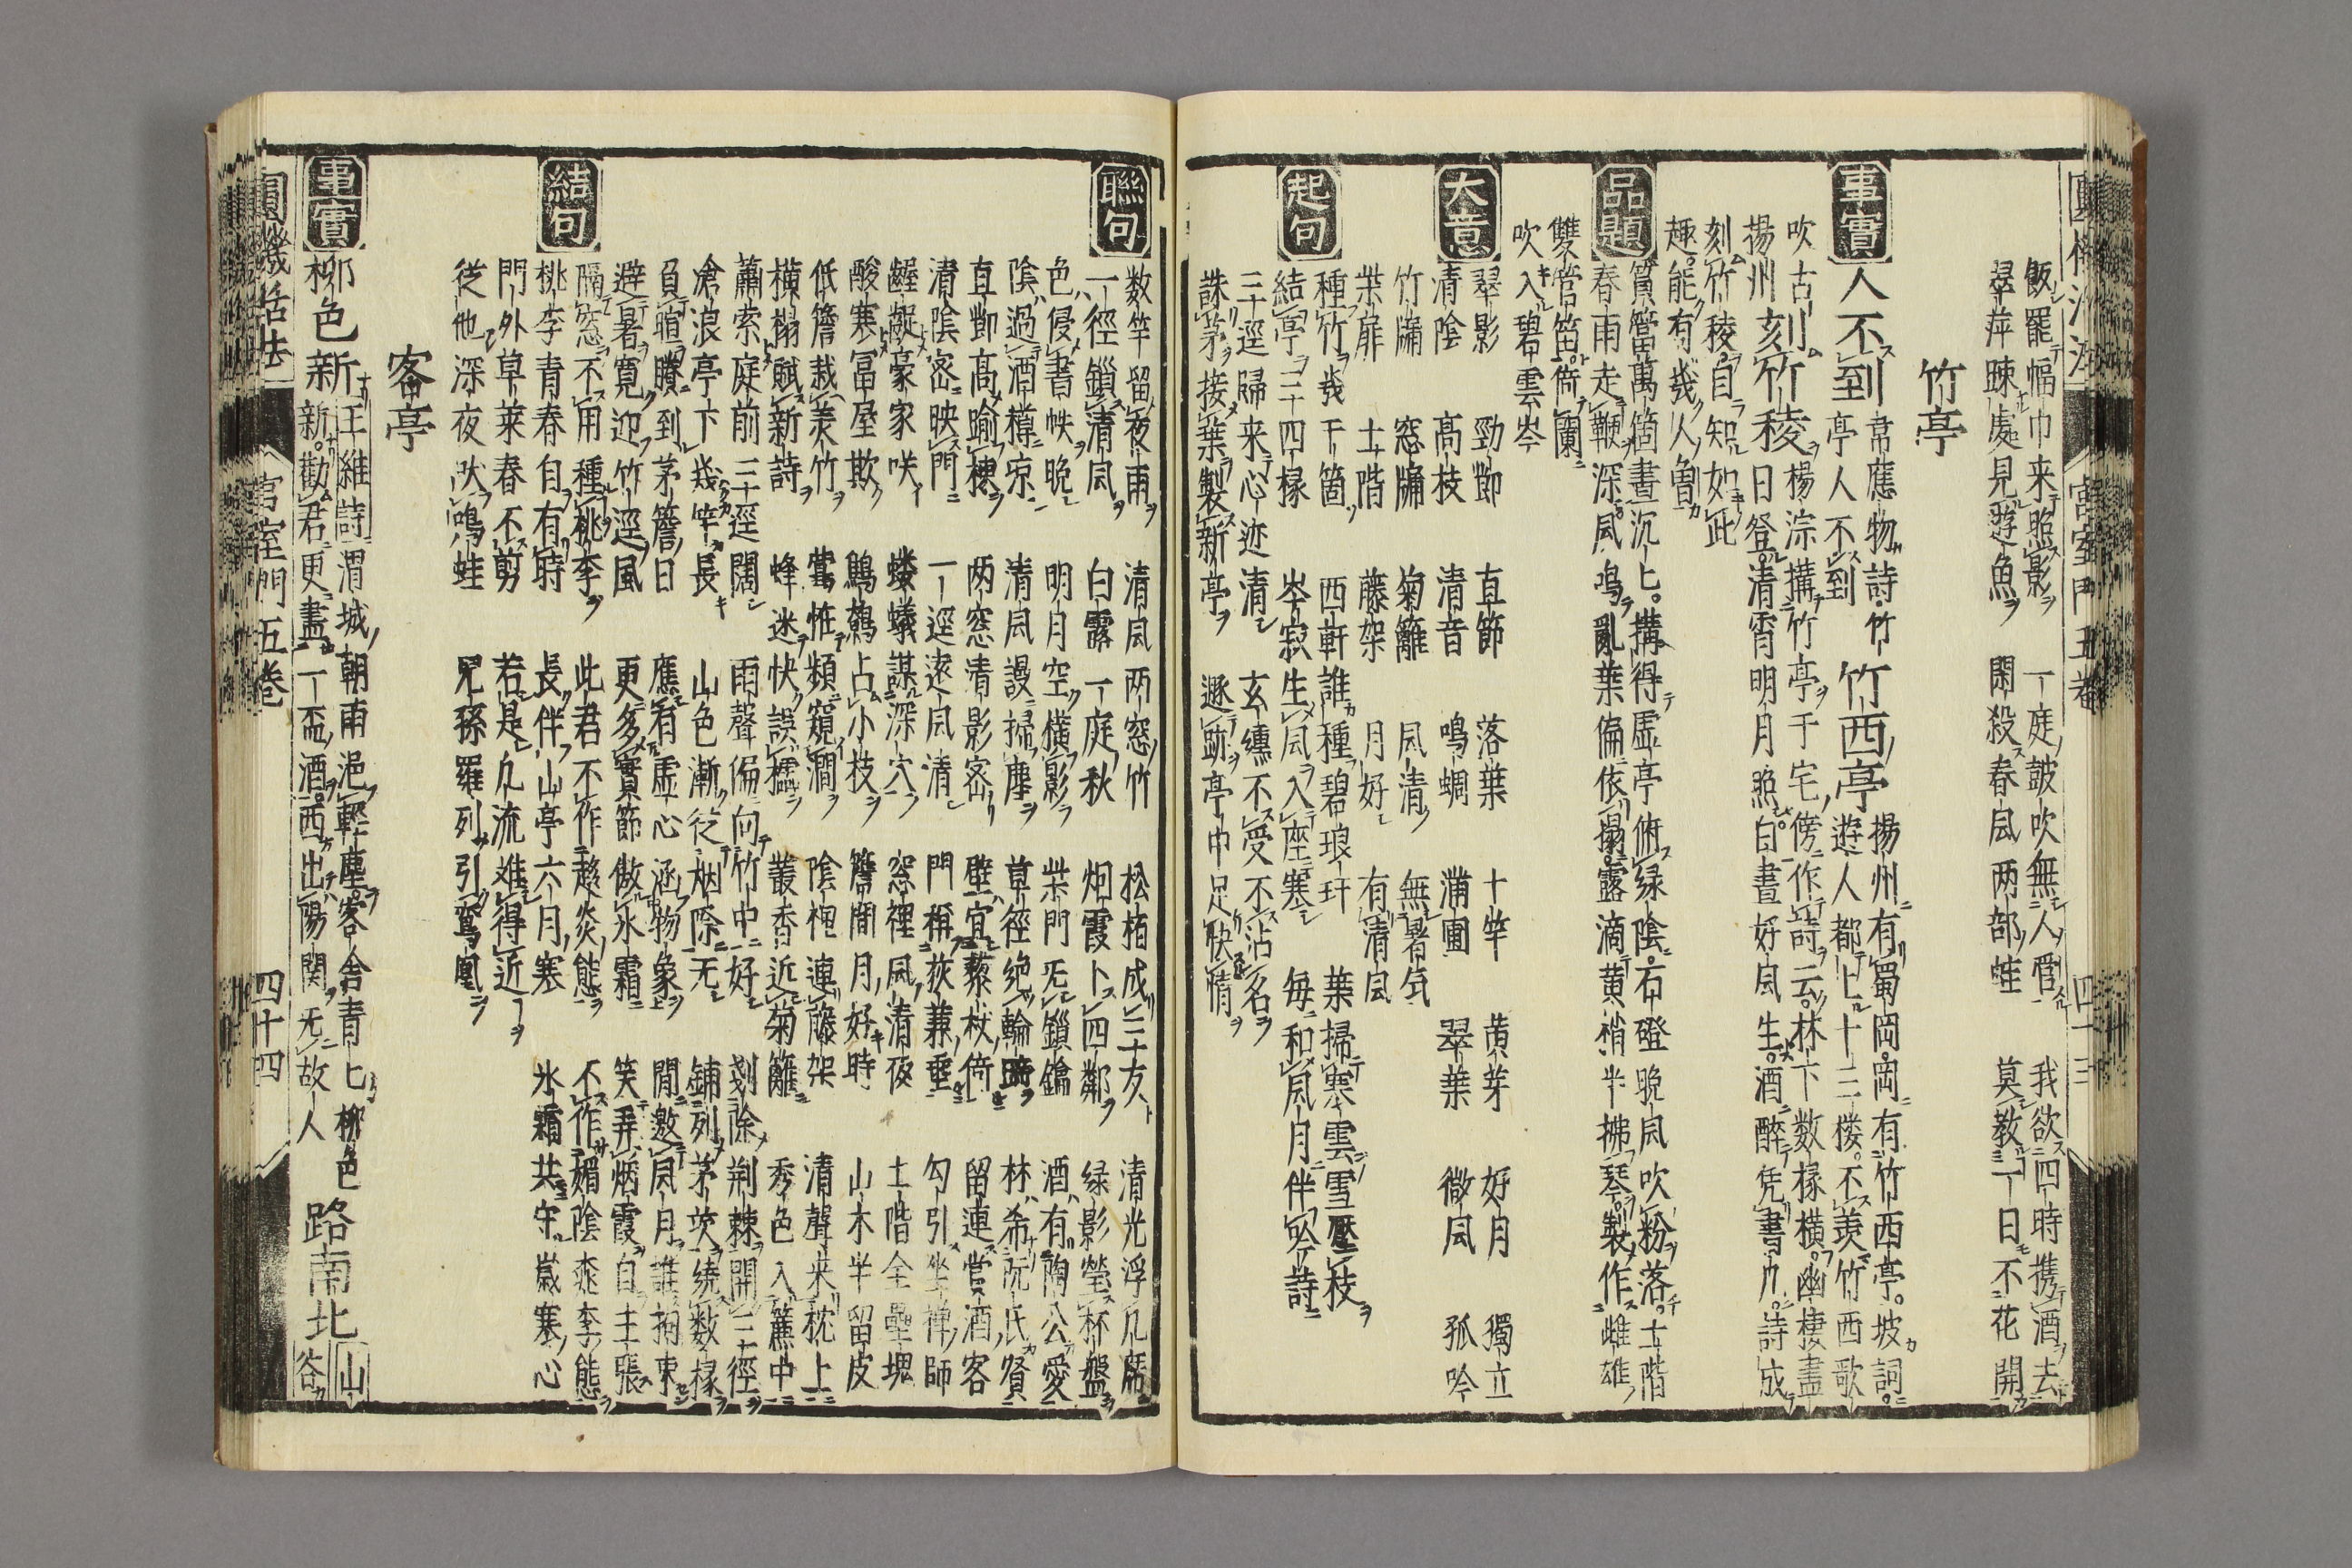 飯罷幅巾来照影 一庭皷吹無人管 我欲四時携酒去
翠萍踈處見遊魚 閑殺春風两部蛙 莫教一日不花開
竹亭
事實
人不到
韋應物詩竹
亭人不到
竹西亭
揚州有蜀岡岡有竹西亭坡詞
遊人都上十三楼不羨竹西歌
吹古
揚州
刻竹稜
楊淙搆竹亭于宅傍作詩云林下数椽横幽棲盡
日登清宵明月照白晝好風生酒醉凭書几詩成
刻竹稜自知如此
趣能有幾人曽
品題
篔簹萬箇晝沉匕搆得虚亭俯緑陰石磴晩風吹粉落土階
春雨走鞭深風鳴亂葉偏依搨露滴黄梢半拂琴製作雌雄
雙管笛倚闌
吹入碧雲岑
大意
翠影 勁節 直節 落葉 十竿 黄芽 好月 獨立
清陰 高枝 清音 鳴蜩 蒲圃 翠葉 微風 孤吟
竹牖 窓牖 菊籬 風清 無暑気
柴扉 土階 藤架 月好 有清風
起句
種竹幾千箇 西軒誰種碧琅玕 葉掃寒雲雪壓枝
結亭三四椽 岑寂生風入座寒 毎和風月伴吟詩
三逕歸来心迹清 玄纁不受不沾名
誅茅接葉製新亭 遯跡亭中足快情
聯句
数竿留夜雨 清風两窓竹 松栢成三友 清光浮几席
一徑鎖清風 白露一庭秋 烟霞卜四鄰 緑影瑩杯盤
色侵書帙晩 明月空横影 柴門旡鎖鑰 酒有陶公愛
陰過酒樽凉 清風謾掃塵 草徑絶輪蹄 林希阮氏賢
直節高踰棟 两窓清影密 壁宜藜杖倚 留連賞酒客
清陰密映門 一逕遠風清 門稱荻蒹垂 勾引坐禅師
齷齪豪家咲 螻蟻謀深穴 窓裡風清夜 土階全壘塊
酸寒冨屋欺 鷦鷯占小枝 簷間月好時 山木半留皮
低簷栽美竹 鶯惟頻窺澗 陰裡連藤架 清聲来枕上
横榻賦新詩 蜂迷快誤櫺 叢香近菊籬 秀色入簾中
蕭索庭前三逕闊 雨聲偏向竹中好 剗除荆棘開三徑
滄浪亭下幾竿長 山色漸従烟除无 鋪列茅茨繞数椽
負暄賸到茅簷日 應有虚心涵物象 閒邀風月誰拘束
避暑寛迎竹逕風 更多實節傲氷霜 笑弄烟霞自主張
隔窓不用種桃李 此君不作趍炎態 不作媚陰桃李態
桃李青春自有時 長伴山亭六月寒 氷霜共守歳寒心
結句
門外草莱春不剪 若是凡流难得近
従他深夜吠鳴蛙 兄孫羅列引鸞凰
客亭
事實
柳色新
王維詩渭城朝雨浥輕塵客舎青匕柳色
新勸君更盡一盃酒西出陽関旡故人
路南北
山
谷
圓機活法 宮室門五巻 四十三
圓機活法 宮室門五巻 四十四